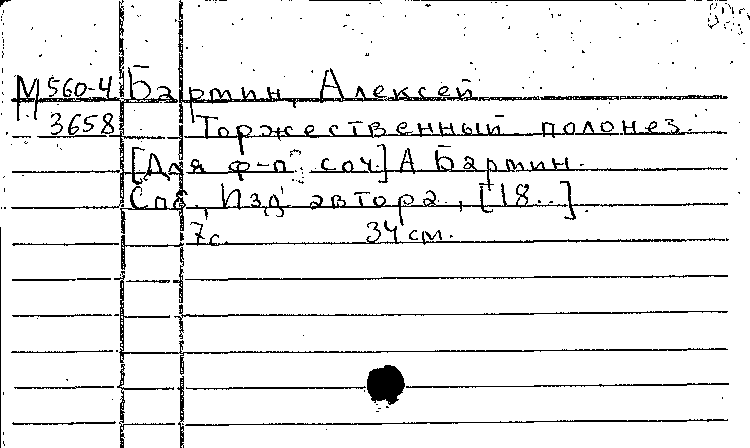 М560-4 Бартин, Алексей
3658 Торжественный полонез.
[Для ф-п. соч.] А Бартин.
Спб., Изд автора, [18..].
7с. 34 см.